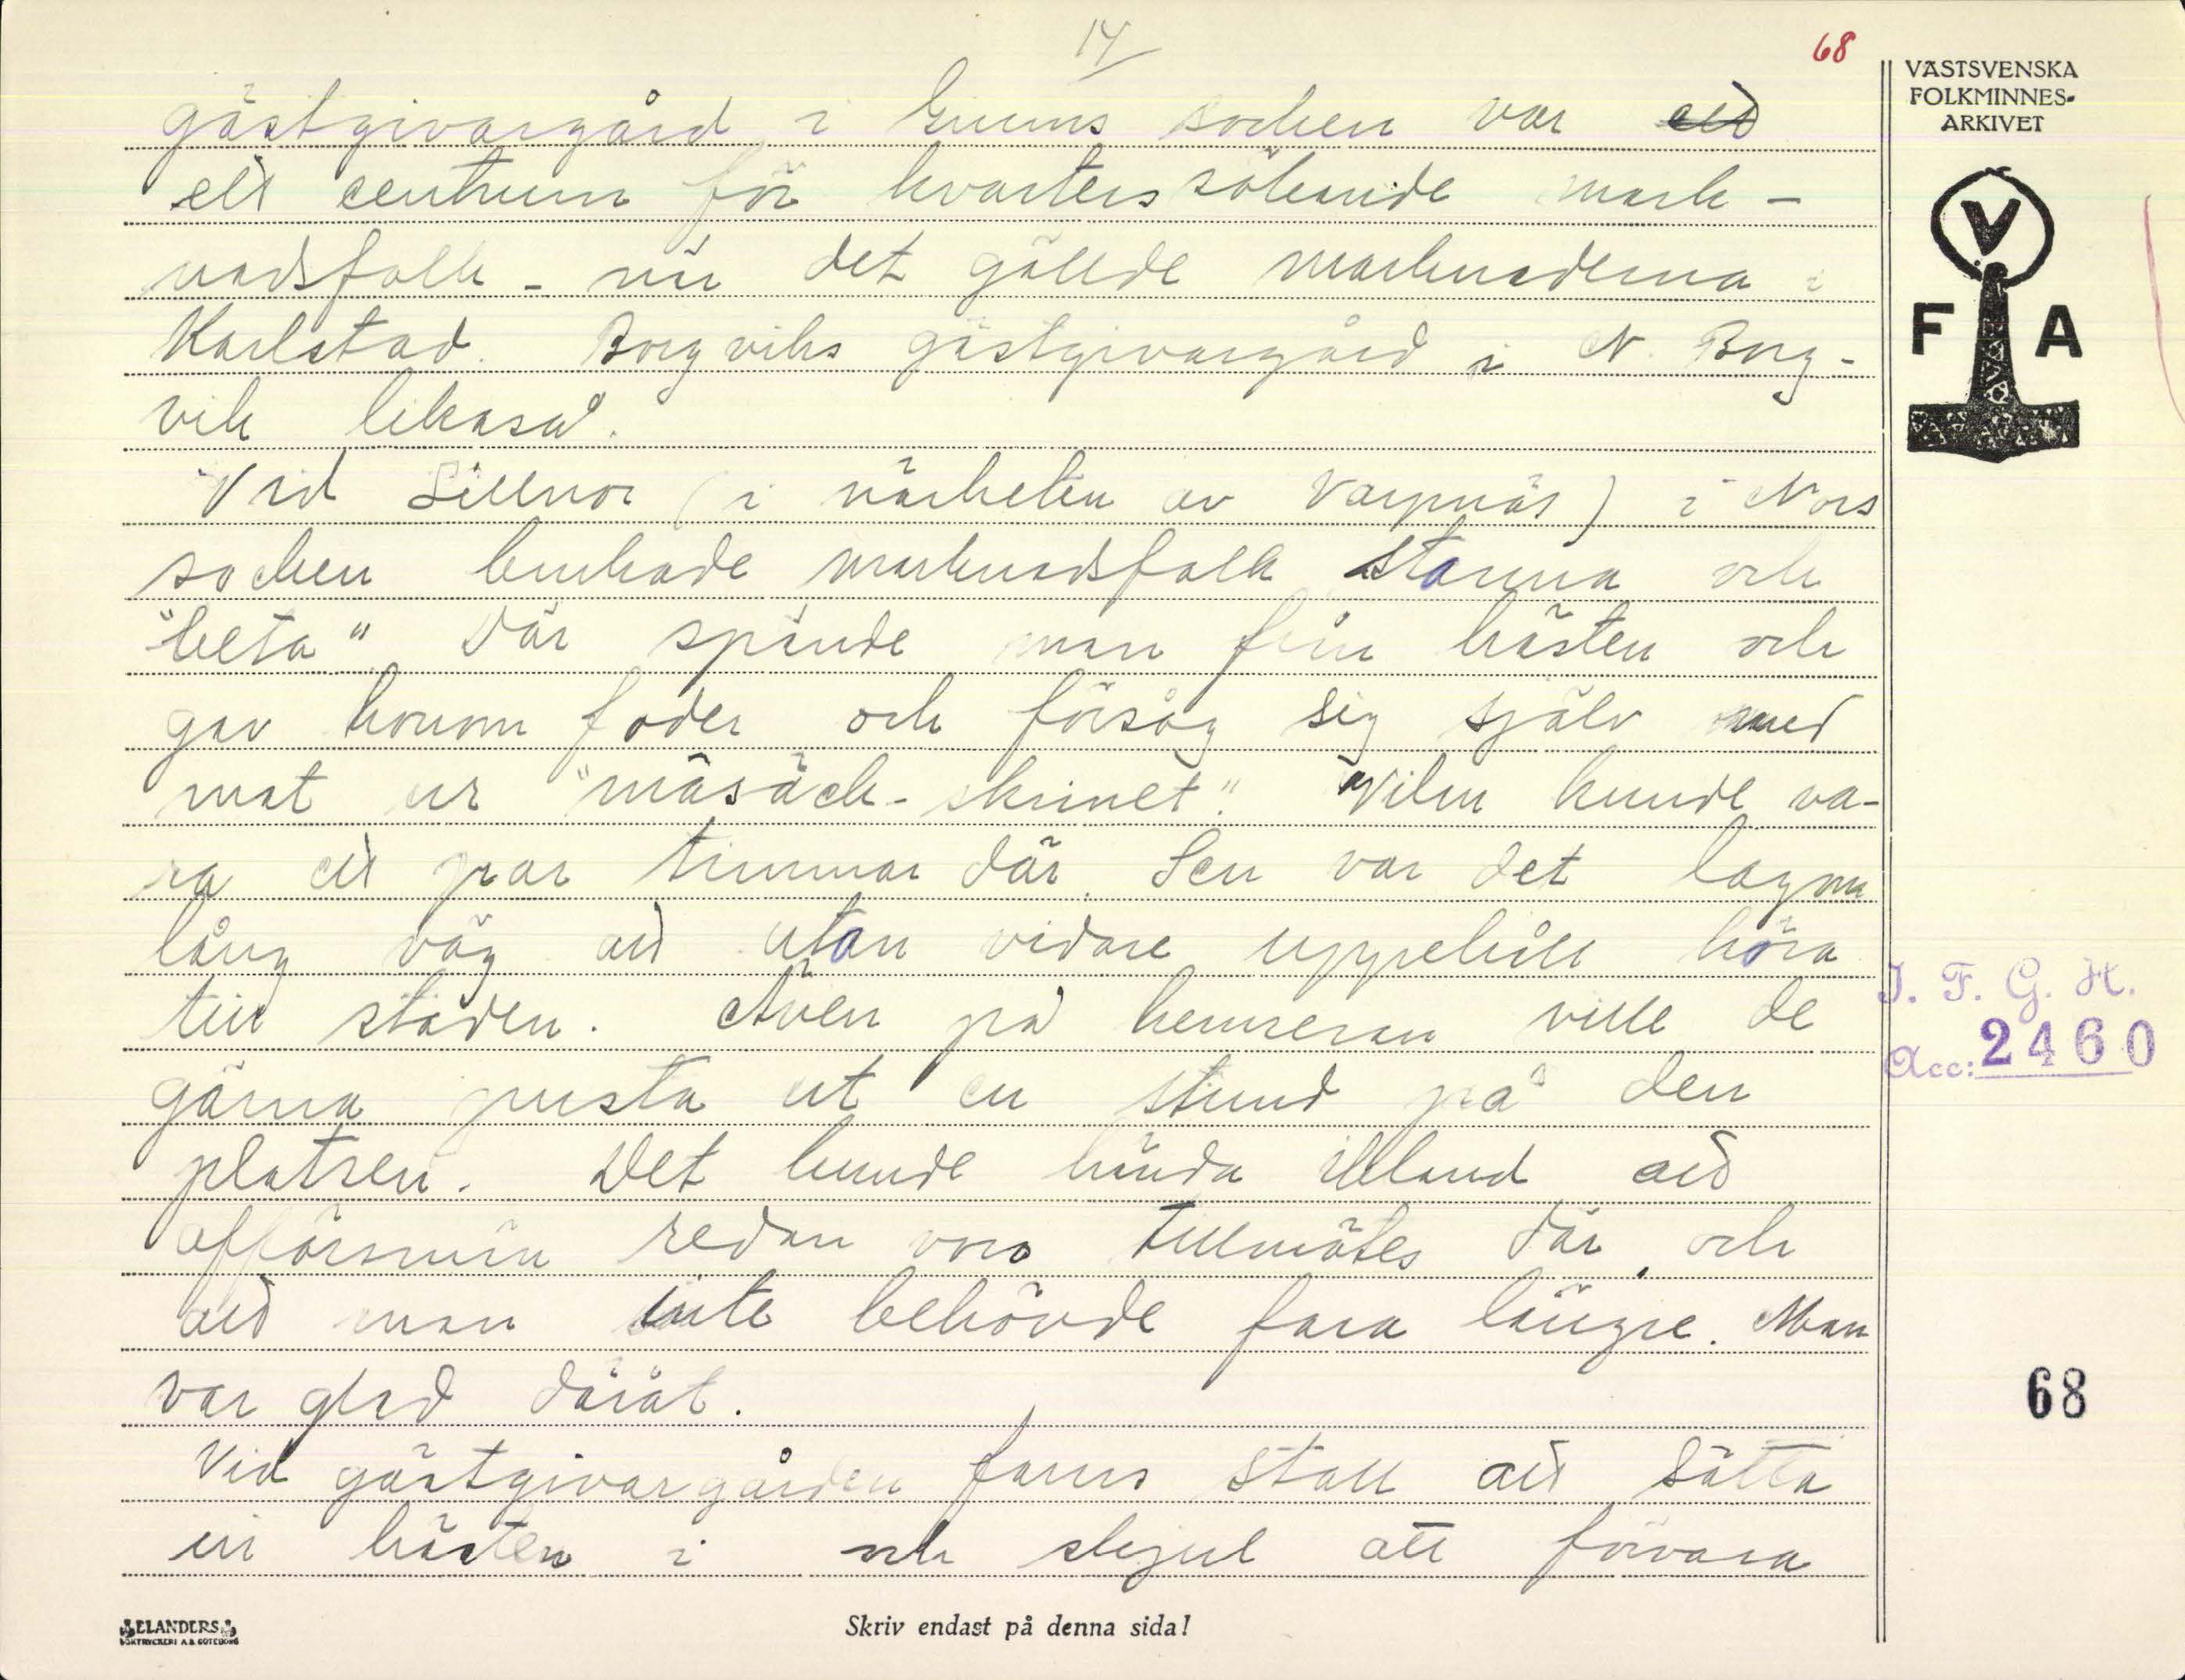 14
68
VÄSTSVENSKA
FOLKMINNES-
ARKIVET
V
F A
gästgivargård i Grums socken var ett
ett centrum för kvarterssökande mark-
nadsfolk - när det gällde marknaderna i
Karlstad. Borgviks gästgivargård i N. Borg-
vik likaså.
Vid Sillnor (i närheten av Varpnäs) i Nors
socken brukade marknadsfolk stanna och
"beta" Där spände man från hästen och
gav honom foder och försåg sig själv med
mat ur "mäsäck-skrinet". Vilan kunde va-
ra ett par timmar där. Sen var det lagom
lång väg att utan vidare uppehåll köra
till staden. Även på hemresan ville de
gärna pusta ut en stund på den
platsen. Det kunde hända ibland att
affärsmän redan voro tillmötes där, och
att man inte behövde fara längre. Man
var glad däråt.
Vid gästgivargården fanns stall att sätta
in hästen i och skjul att förvara
I. F. G. H.
Acc: 2460
68
ELANDERS
BOKTRYCKERI A.B. GÖTEBORG
Skriv endast på denna sida!